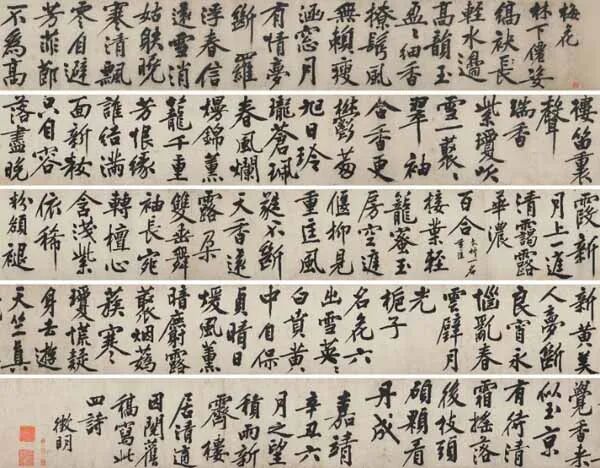 梅花
林下僊姿
縞袂長
輕水邊
高韻玉
盈盈細香
撩鬢風
無賴瘦
涵窗月
有情夢
斷羅
浮春信
遠雪消
姑射晚
寒清飄
零自避
芳菲節
不為高
樓笛裏
聲
瑞香
紫瓊吹
雪一叢叢
翠袖
合香更
旭日玲
瓏蒼珮
春風爛
熳錦薰
籠千重
芳恨緣
誰結滿
面新妝
只自容
落盡晚
霞新
月上一遊
清靄露
華濃
百合
接葉輕
籠蜜玉
房空遮
偃柳見
風
蕤不斷
天香遠
露朵
雙垂舞
袖長宛
轉檀心
含淺紫
依稀
粉額褪
新黃美
人夢斷
良宵永
惱亂春
雲璧月
光
梔子
名花六
出雪英英
白賁黃
中自保
貞晴日
煖風薰
暗麝露
叢烟
蔟寒
瓊慌疑
身去遊
天竺真
覺香來
似玉京
有待清
霜搖落
後枝頭
碩顆看
丹成
嘉靖
辛丑六
月之望
積雨新
霽樓
居清適
因閱舊
稿寫此
四詩
徵明